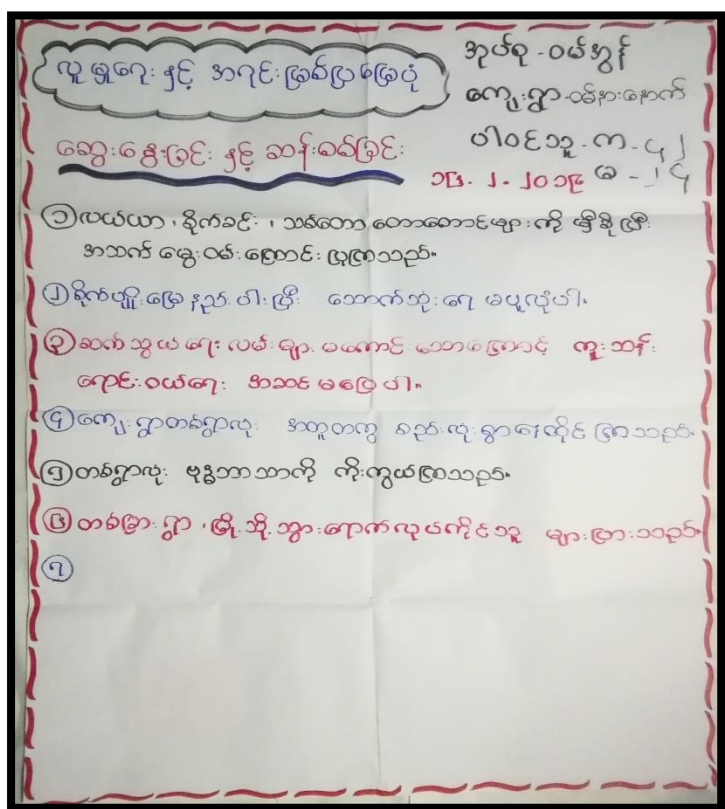 လူမှုရေး နှင့် အရင်းမြစ်ပြမြေပုံ
ဆွေးနွေးခြင်း နှင့် ဆန်းစစ်ခြင်း
အုပ်စု - ဝမ်အွန်
ကျေးရွာ - ဝမ်နားနောက်
ပါဝင်သူ - က - ၄၂
မ - ၂၄
၁၆. ၂. ၂၀၁၉
၁ လယ်ယာ ၊ စိုက်ခင်း ၊ သစ်တော တောတောင်များ ကို မှီခိုပြီး
အသက် မွေးဝမ်းကြောင်း ပြုကြသည်။
၂ စိုက်ပျိုးမြေ နည်းပါးပြီး သောက်သုံးရေ မလုံလောက်ပါ။
၃ ဆက်သွယ်ရေး လမ်းများ မကောင်းသောကြောင့် ကူးသန်း
ရောင်းဝယ်ရေး အဆင်မပြေပါ။
၄ ကျေးရွာတစ်ရွာလုံး အတူတကွ စည်းလုံးစွာနေထိုင်ကြသည်။
၅ တစ်ရွာလုံး ဗုဒ္ဓဘာသာကို ကိုးကွယ်ကြသည်။
၆ တစ်ခြားရွာ ၊ မြို့သို့ သွားရောက်လုပ်ကိုင်သူ များပြားသည်။
၇